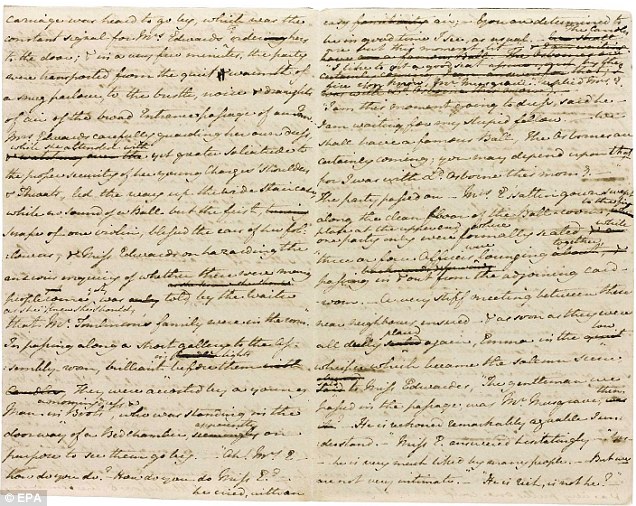 carriage was heard to go by, which was the
constant signal for Mrs Edwards' ordering hers
to the door; & in a very few minutes, the party
were transported from the quiet & warmth of
a snug parlour to the bustle, noise & draughts
of air of the broad Entrance passage of an Inn.
Mrs Edwards carefully guarding her own Dress,
while she attended with
yet greater Solicitude to
the proper security of her young Charges' Shoulders
& Throats, led the way up the wide staircase,
while no sound of a Ball but the first
scrape of one violin, blessed the ears of her fol=
lowers, & Miss Edwards on hazarding the
anxious enquiry of whether there were many
people come yet was told by the Waiter
as she knew she should,
that Mr Tomlinson's family were in the room.
In passing along a short gallery to the As-
sembly room, brilliant in lights before them
They were accosted by a young
Man in a morning dress & Boots, who was standing in the
doorway of a Bedchamber, apparently on
purpose to see them go by. — Ah! Mrs E—
how do you do? — How do you do Miss E.? —
he cried, with an
easy air; — You are determined to
be in good time I see, as usual. — The Candles
are but this moment lit
I like to get a good seat by the fire you know, Mr Musgrave. replied Mrs E.
I am this moment going to dress, said he —
I am waiting for my stupid fellow. — We
shall have a famous Ball. The Osbornes are
certainly coming; you may depend upon that
for I was with Ld Osborne this morng
The party passed on — Mrs E's sattin gown swept
along the clean floor of the Ball-room to the fire
place at the upper end, where
one party only were formally seated, while
three or four Officers were lounging together,
passing in & out from the adjoining card-
room. — A very stiff meeting between these
near neighbours ensued — & as soon as they were
all duely placed again, Emma in the low
whisper which became the solemn scene
said to Miss Edwardes, "The gentleman we
passed in the passage, was Mr Musgrave, then?
— He is reckoned remarkably agreable I un=
derstand. — Miss E. answered hesitatingly — "Yes
— he is very much liked by many people. — But we
are not very intimate." — "He is rich, is not he? —
© EPA